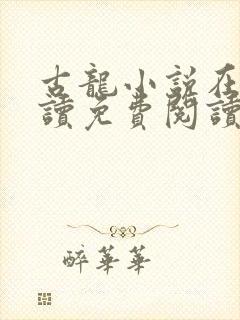 古龍小說在
讀免費閱讀
醉華華